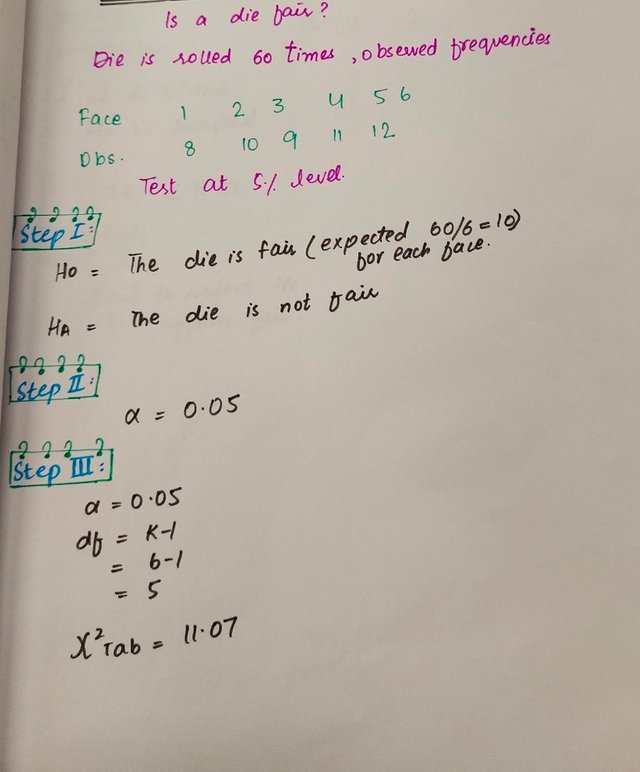 Is a die fair?
Die is rolled 60 times, observed frequencies
Face 1 2 3 4 5 6
Obs. 8 10 9 11 12
Test at 5% level.
Step I:
H0 = The die is fair (expected 60/6=10)
for each face.
HA = The die is not fair
Step II:
α = 0.05
Step III:
α = 0.05
df = K-1
= 6-1
= 5
X²Tab = 11.07